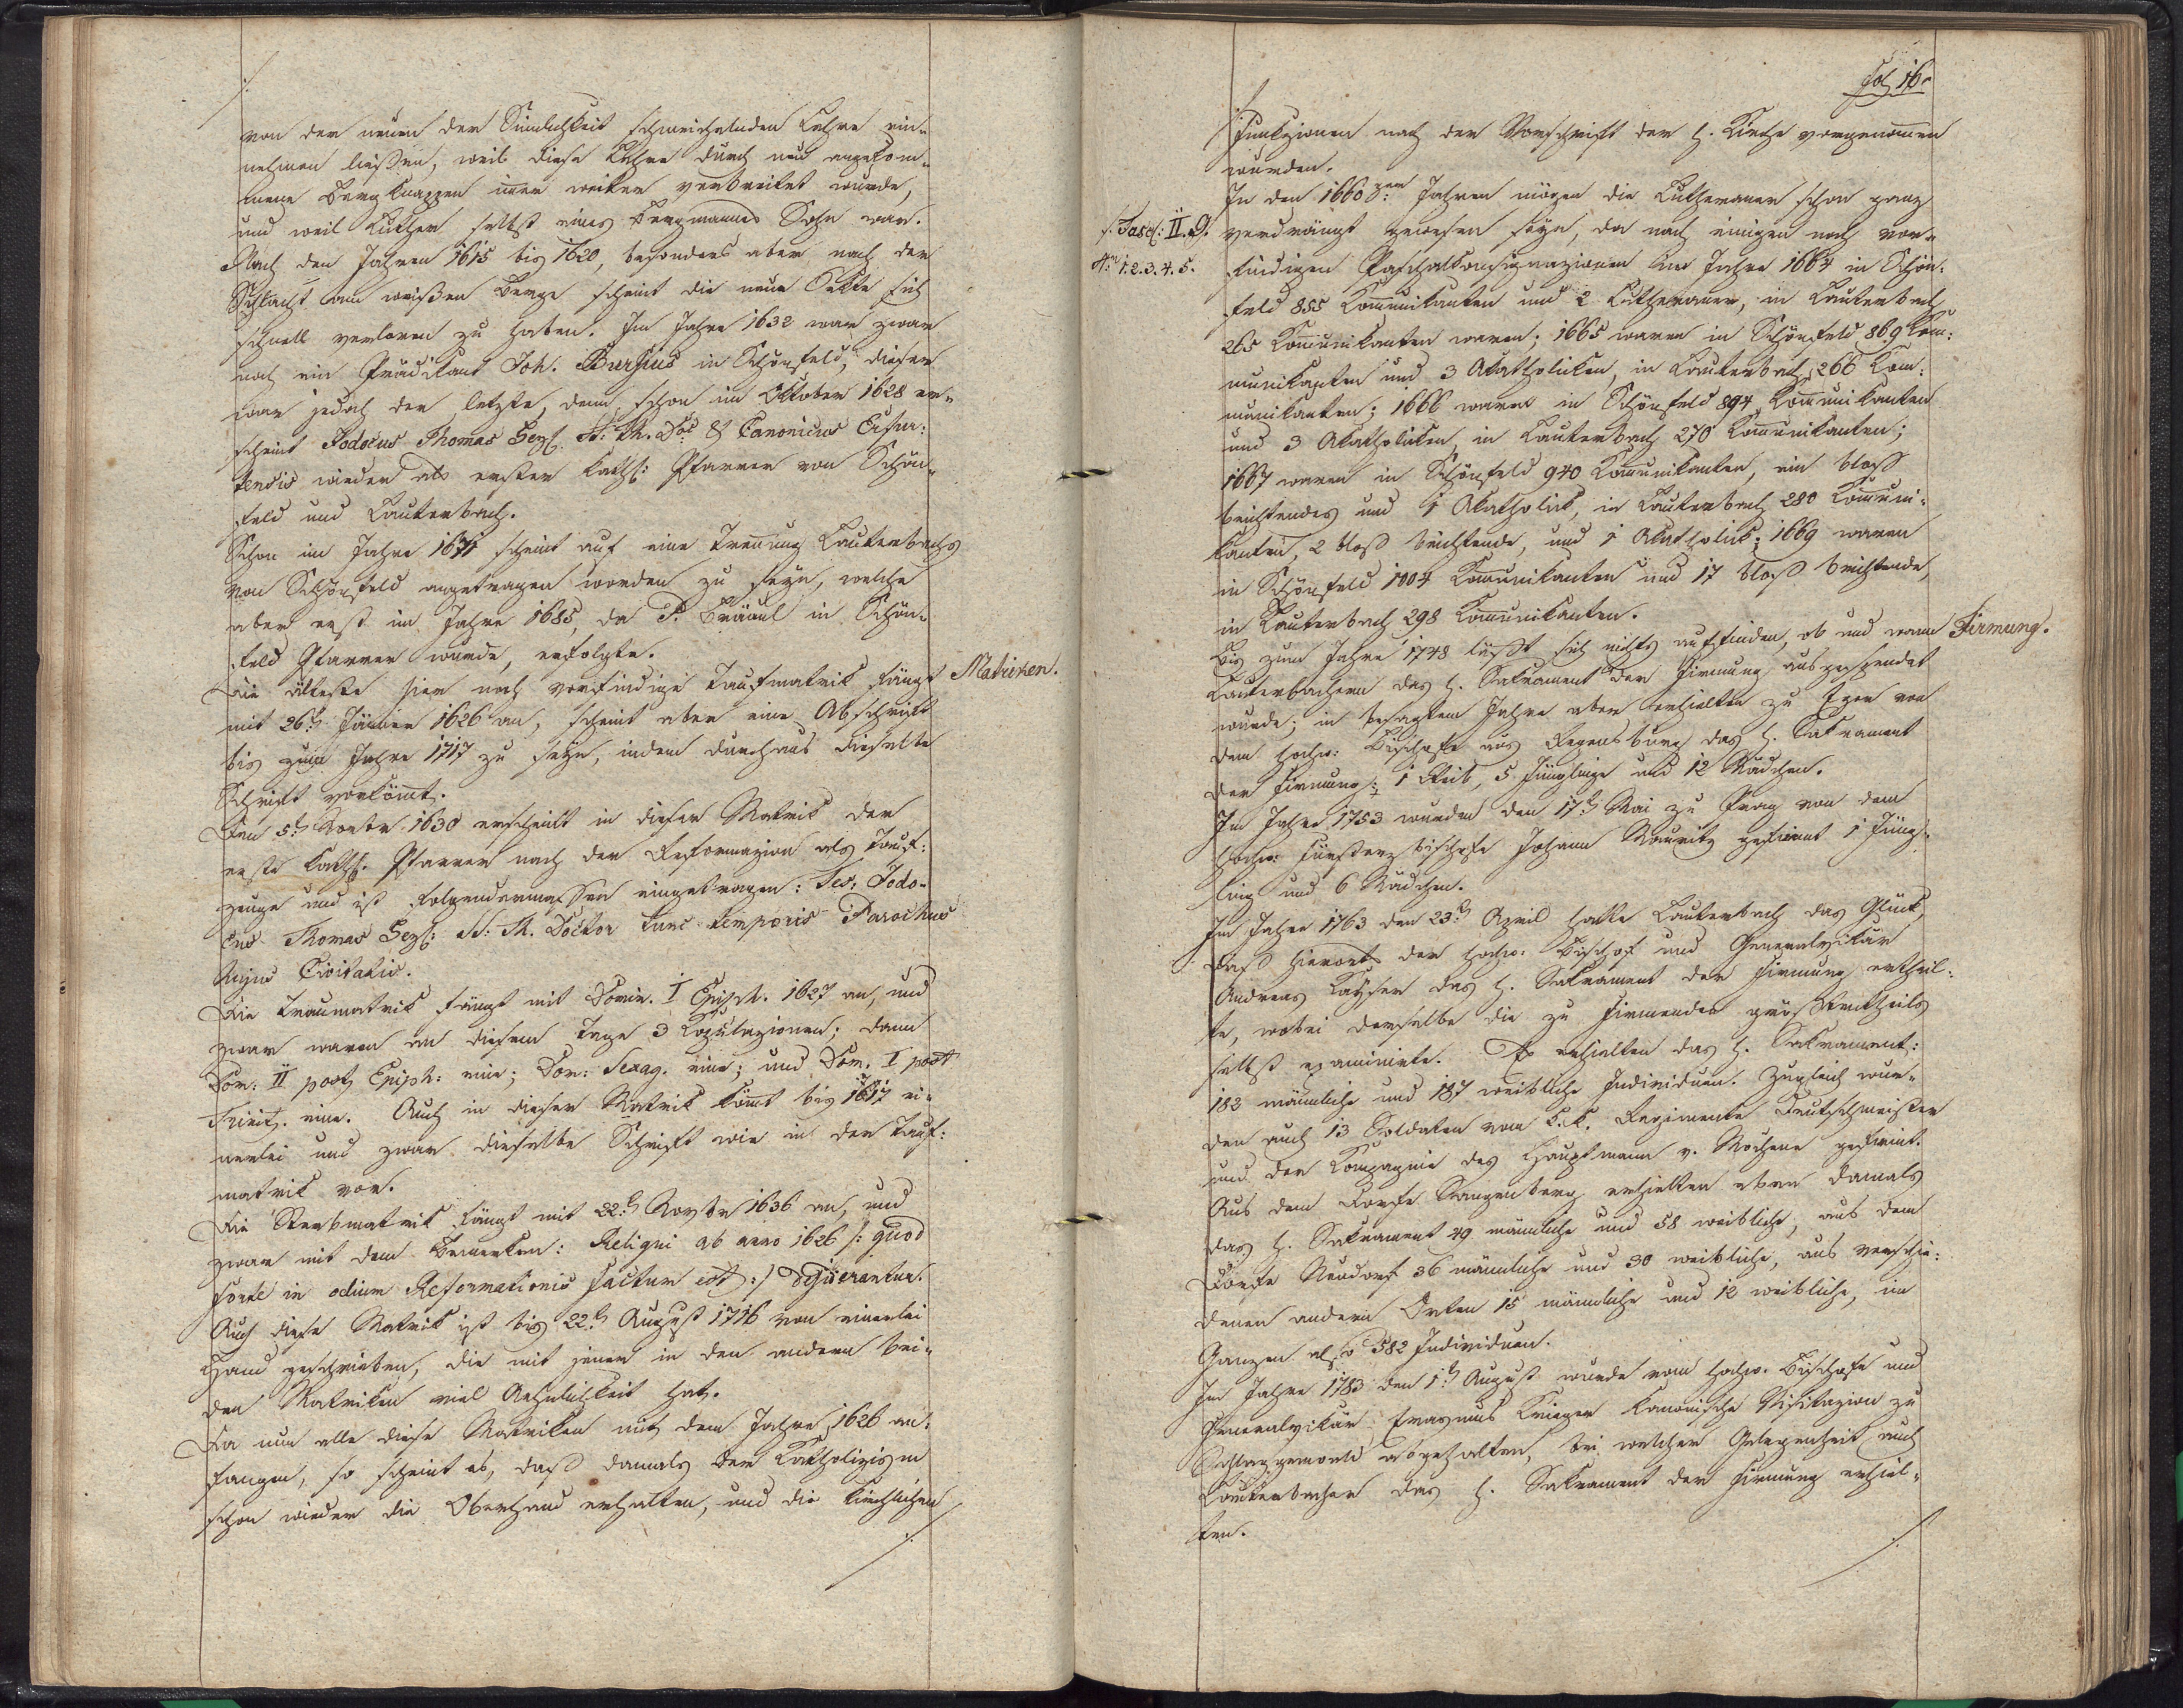 von der neuen der Sinnlichkeit schmeichelnden Lehre ein-
nehmen ließen, weil diese Lehre durch neu angekom-
mene Bergknappen immer weiter verbreitet wurde,
und weil Luther selbst eines Bergmannes Sohn war.
Nach den Jahren 1615 bis 1620, besonders aber nach der
Schlacht am weißen Berge scheint die neue Sekte sich
schnell verloren zu haben. Im Jahre 1632 war zwar
noch ein Prädikant Joh. Bursius in Schönfeld, dieser
war jedoch der letzte, denn schon im Oktober 1628 er-
scheint Jodocus Thomas SS: Th. Doc & Canonicus
wieder als erster kathl: Pfarrer von Schön-
feld und Lauterbach.
Schon im Jahre 1671 scheint auf eine Trennung Lauterbachs
von Schönfeld angetragen worden zu seyn, welche
aber erst im Jahre 1685, da P. Bräunl in Schön-
feld Pfarrer wurde, erfolgte.
Matriken.
Die älteste hier noch vorfindige Taufmatrik fängt
mit 26t Jänner 1626 an, scheint aber eine Abschrift
bis zum Jahre 1717 zu seyn, indem durchaus dieselbe
Schrift vorkömmt.
Den 5t Novbr 1630 erscheint in dieser Matrik der
erste kathl. Pfarrer nach der Reformazion als Tauf:
zeuge und ist folgendermassen eingetragen: Tes. Jodo-
cus Thomas SS: Th. Doctor tunc temporis Parochus
hujus Civitatis.
Die Traumatrik fängt mit Domin. I Epiph. 1627 an, und
zwar waren an diesem Tage 3 Kopulazionen; dann
Dom: II post Epiph: eine; Dom: Sexag. eine; und Dom. I post
Trinit. eine. Auch in dieser Matrik kömt bis 1617 ei-
nerlei und zwar dieselbe Schrift wie in der Tauf:
matrik vor.
Die Sterbmatrik fängt mit 22t Novbr 1636 an, und
zwar mit dem Bemerken: Reliqui ab anno 1626 /: quod
forte in odium Reformationis factum est :/
Auch diese Matrik ist bis 22t August 1716 von einerlei
Hand geschrieben, die mit jener in den andern bei-
den Matriken viel Aehnlichkeit hat.
Da nun alle diese Matriken mit dem Jahre 1626 an:
fangen, so scheint es, daß damals der Katholizism
schon wieder die Oberhand erhalten, und die kirchlichen
Fol 16.
Funkzionen nach der Vorschrift der h. Kirche vorgenommen
wurden.
/. Fasc: II. G.
Nr. 1. 2. 3. 4. 5.
In den 1660ger Jahren mögen die Lutheraner schon ganz
verdrängt gewesen seyn, da nach einigen noch vor-
findigen Paschalkonsignazionen im Jahre 1664 in Schön-
feld 855 Kommunikanten und 2 Lutheraner, in Lauterbach
265 Kommunikanten waren; 1665 waren in Schönfeld 869 Kom:
munikanten und 3 Akatholiken, in Lauterbach 266 Kom:
munikanten; 1666 waren in Schönfeld 894 Kommunikanten
und 3 Akatholiken, in Lauterbach 270 Kommunikanten;
1667 waren in Schönfeld 940 Kommunikanten, ein bloß
beichtendes und 1 Akatholik, in Lauterbach 280 Kommuni-
kanten, 2 bloß beichtende, und 1 Akatholik; 1669 waren
in Schönfeld 1004 Kommunikanten und 17 bloß beichtende,
in Lauterbach 298 Kommunikanten.
Firmung.
Bis zum Jahre 1748 läßt sich nichts auffinden, ob und wann
Lauterbachern das h. Sakrament der Firmung ausgespendet
wurde; in besagtem Jahre aber erhielten zu Eger von
dem hochw: Bischofe aus Regensburg das h. Sakrament
der Firmung: 1 Weib, 5 Jünglinge und 12 Mädchen.
Im Jahre 1753 wurden den 17t Mai zu Prag von dem
hochw: Fürsterzbischofe Johann Mauritz gefirmt 1 Jüng-
ling und 6 Mädchen.
Im Jahre 1763 den 23t April hatte Lauterbach das Glück,
daß hierorts der hochw. Bischof und Generalvikär
Andreas Kayser das h. Sakrament der Firmung ertheil:
te, wobei derselbe die zu Firmenden größtentheils
selbst examinirte. Es erhielten das h. Sakrament:
182 männliche und 187 weibliche Individuen. Zugleich wur-
den auch 13 Soldaten vom k.k. Regimente Deutschmeister
und der Kompagnie des Hauptmann v. gefirmt.
Aus dem Dorfe Stangenberg erhielten eben damals
das h. Sakrament 49 männliche und 58 weibliche, aus dem
Dorfe Neudorf 36 männliche und 30 weibliche, aus verschie:
denen andern Orten 15 männliche und 12 weibliche, im
Ganzen also 582 Individuen.
Im Jahre 1783 den 1t August wurde vom hochw. Bischofe und
Generalvikär Erasmus Krieger kanonische Visitazion zu
Schlaggenwald abgehalten, bei welcher Gelegenheit auch
Lauterbacher das h. Sakrament der Firmung erhiel-
ten.